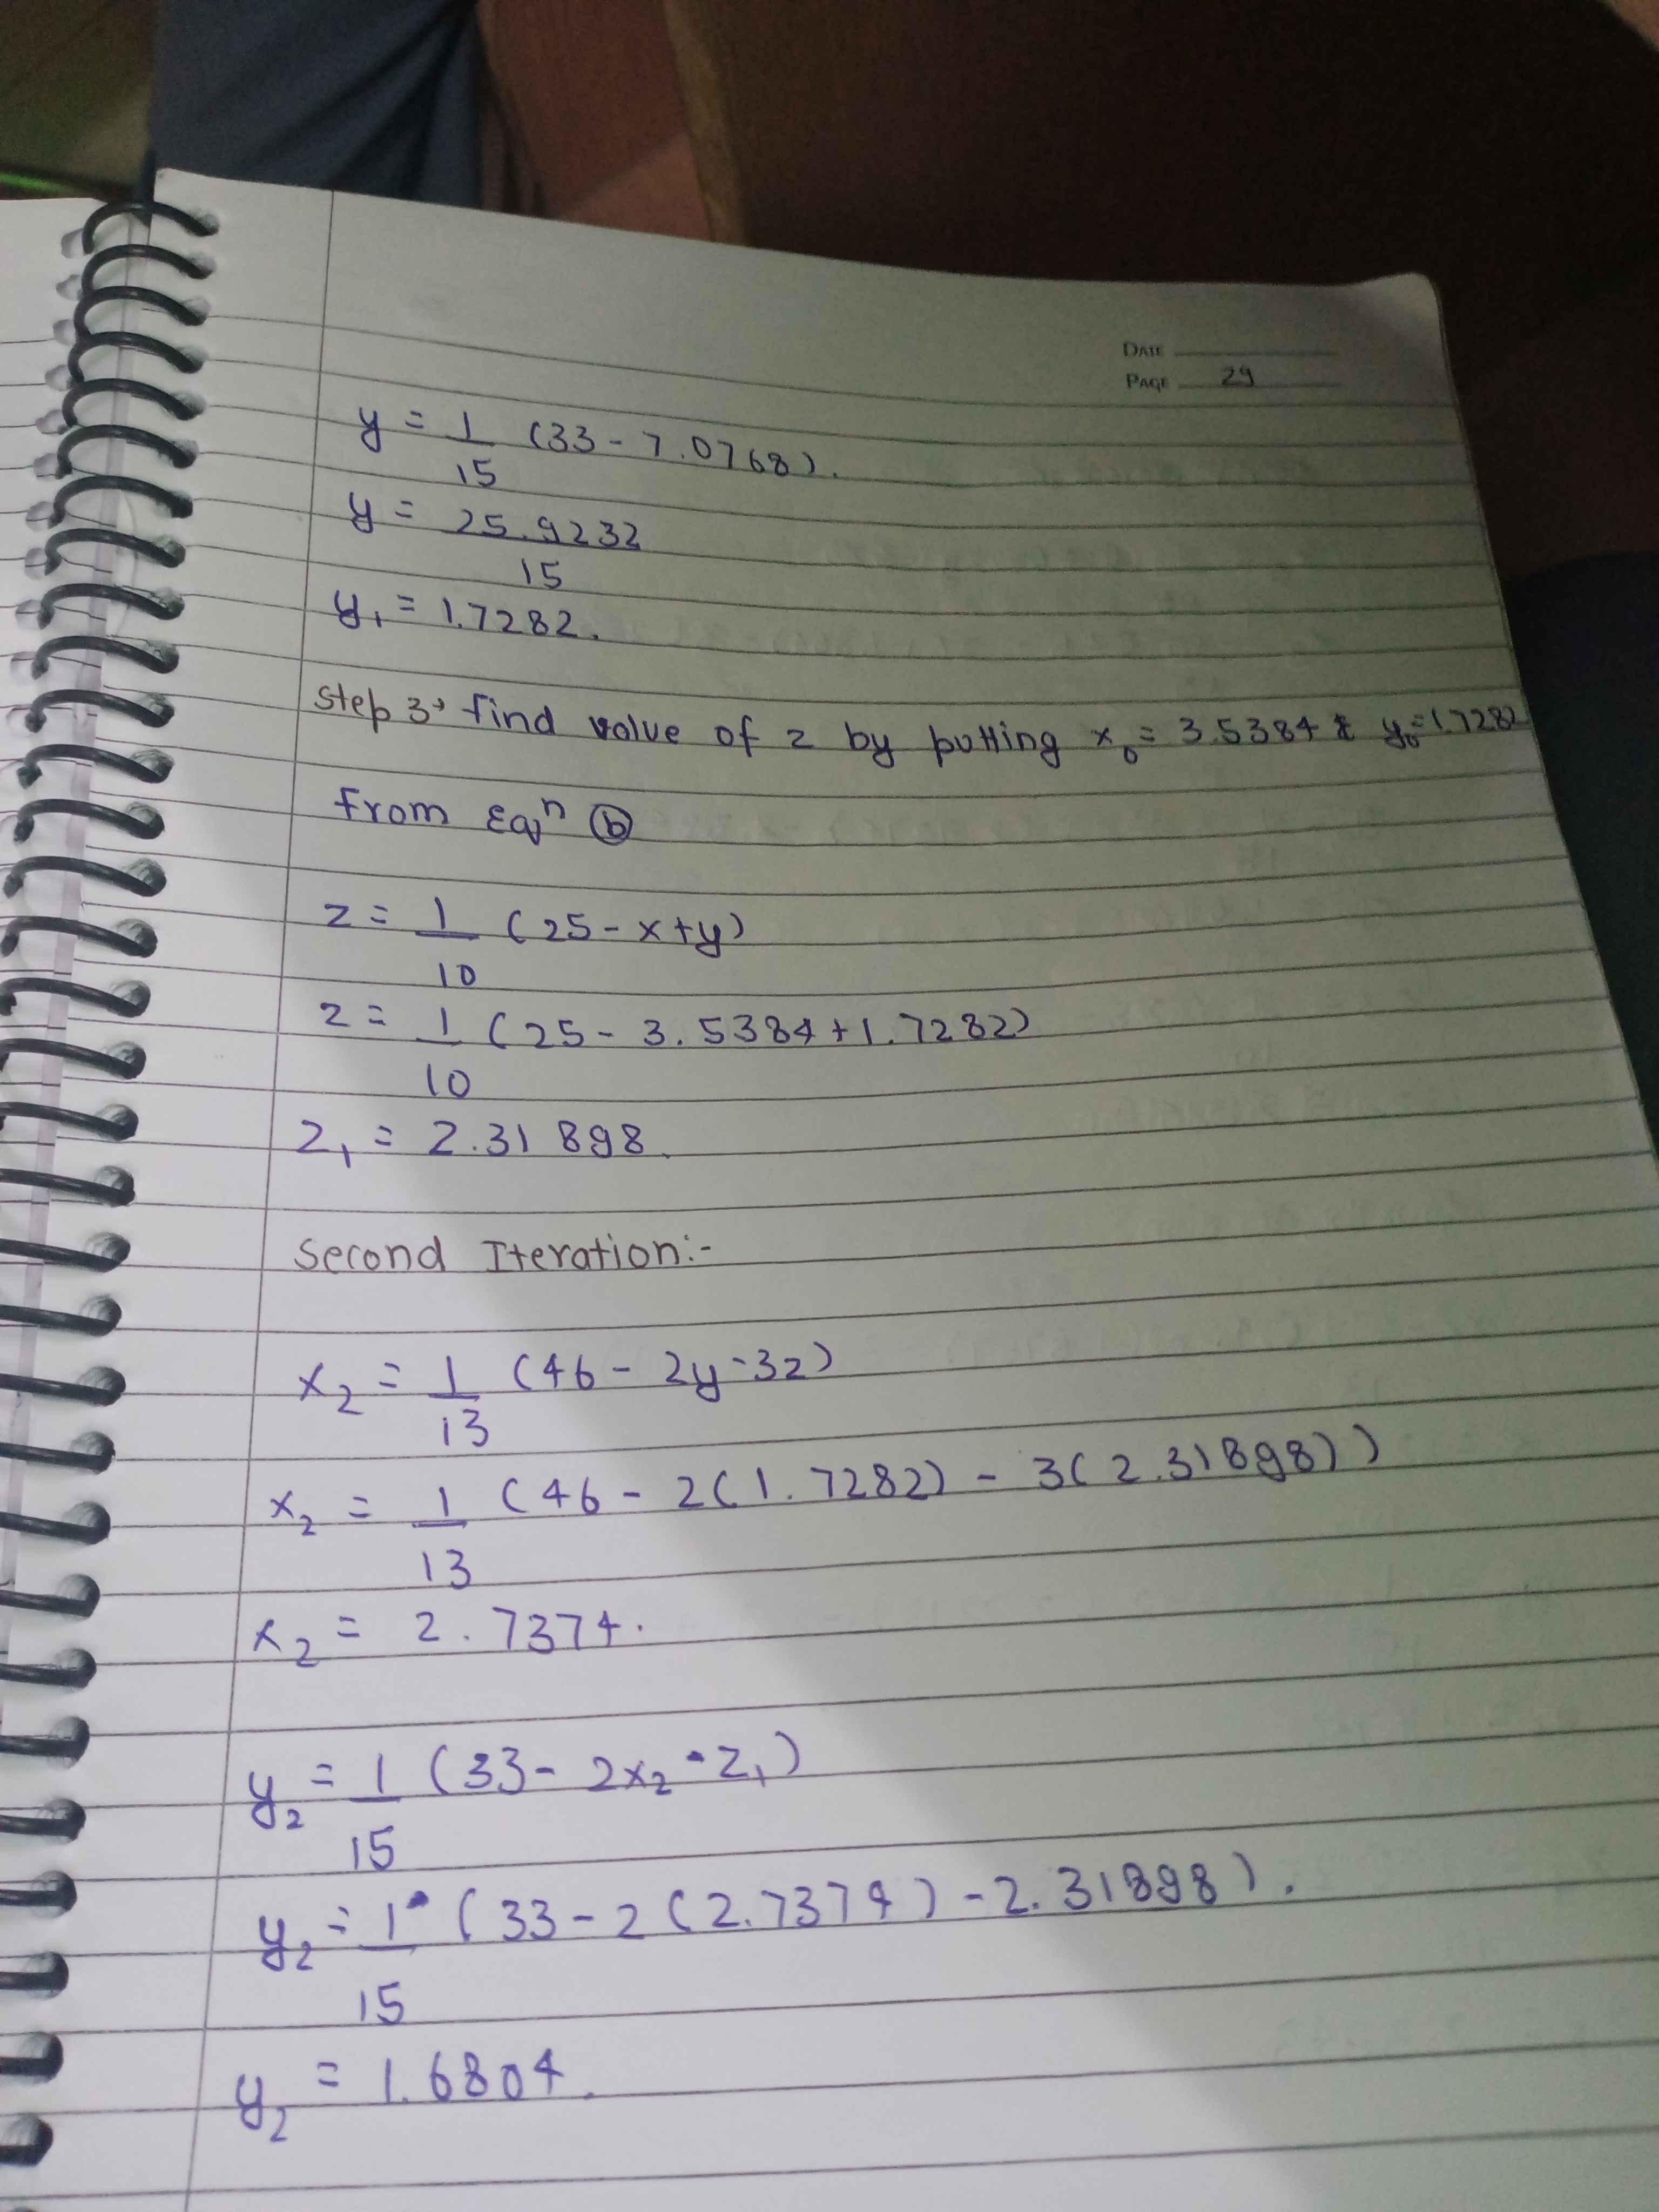 DATE
PAGE 29
y = 1/15 (33 - 7.0768).
y = 25.9232/15
y₁ = 1.7282.
Step 3, find value of z by putting x₀ = 3.5384 & y₀ = 1.7282
From Eqⁿ ⓑ
z = 1/10 (25 - x + y)
z = 1/10 (25 - 3.5384 + 1.7282)
z₁ = 2.31898.
Second Iteration:-
x₂ = 1/13 (46 - 2y - 3z)
x₂ = 1/13 (46 - 2(1.7282) - 3(2.31898))
x₂ = 2.7374.
y₂ = 1/15 (33 - 2x₂ - z₁)
y₂ = 1/15 (33 - 2(2.7374) - 2.31898).
y₂ = 1.6804.